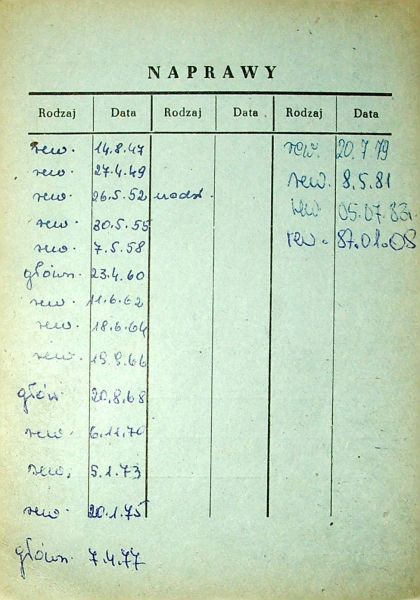 NAPRAWY
Rodzaj Data Rodzaj Data Rodzaj Data
rew. 14.8.47 rew. 20.7.79
rew. 27.4.49 rew. 8.5.81
rew. 26.5.52 rew. 05.07.83
rew. 30.5.55 rew. 87.01.08
rew. 7.5.58
główn. 23.4.60
rew. 11.6.62
rew. 18.6.64
rew. 19.9.66
główn. 20.8.68
rew. 6.11.70
rew. 5.1.73
rew. 20.1.75
główn. 7.4.77